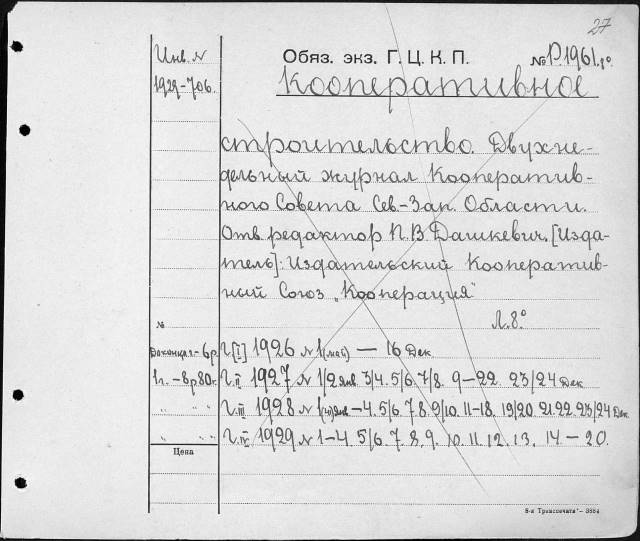 27
Инв. N
1929-706.
Обяз. экз. Г. Ц. К. П.
№ P.1961.
Кооперативное
строительство. Двухне-
дельный журнал Кооператив-
ного Совета Сев.-Зап. Области.
Отв. редактор П. В. Дашкевич. [Изда-
тель]: Издательский Кооператив-
ный Союз „Кооперация"
Л. 8.°
№
До конца г. - 6 р. Г. [I] 1926 N 1 (май) — 16 Дек.
1 г. - 8 р. 80 к. Г. II 1927 N 1/2 Янв. 3/4. 5/6. 7/8. 9-22. 23/24 Дек
" " " Г. III 1928 N 1 Янв - 4. 5/6. 7. 8. 9/10. 11-18. 19/20. 21. 22. 23/24 Дек.
" " " Г. IV 1929 N 1-4. 5/6. 7. 8. 9. 10. 11. 12. 13. 14 — 20.
Цена
8-я Транспечати - 3884